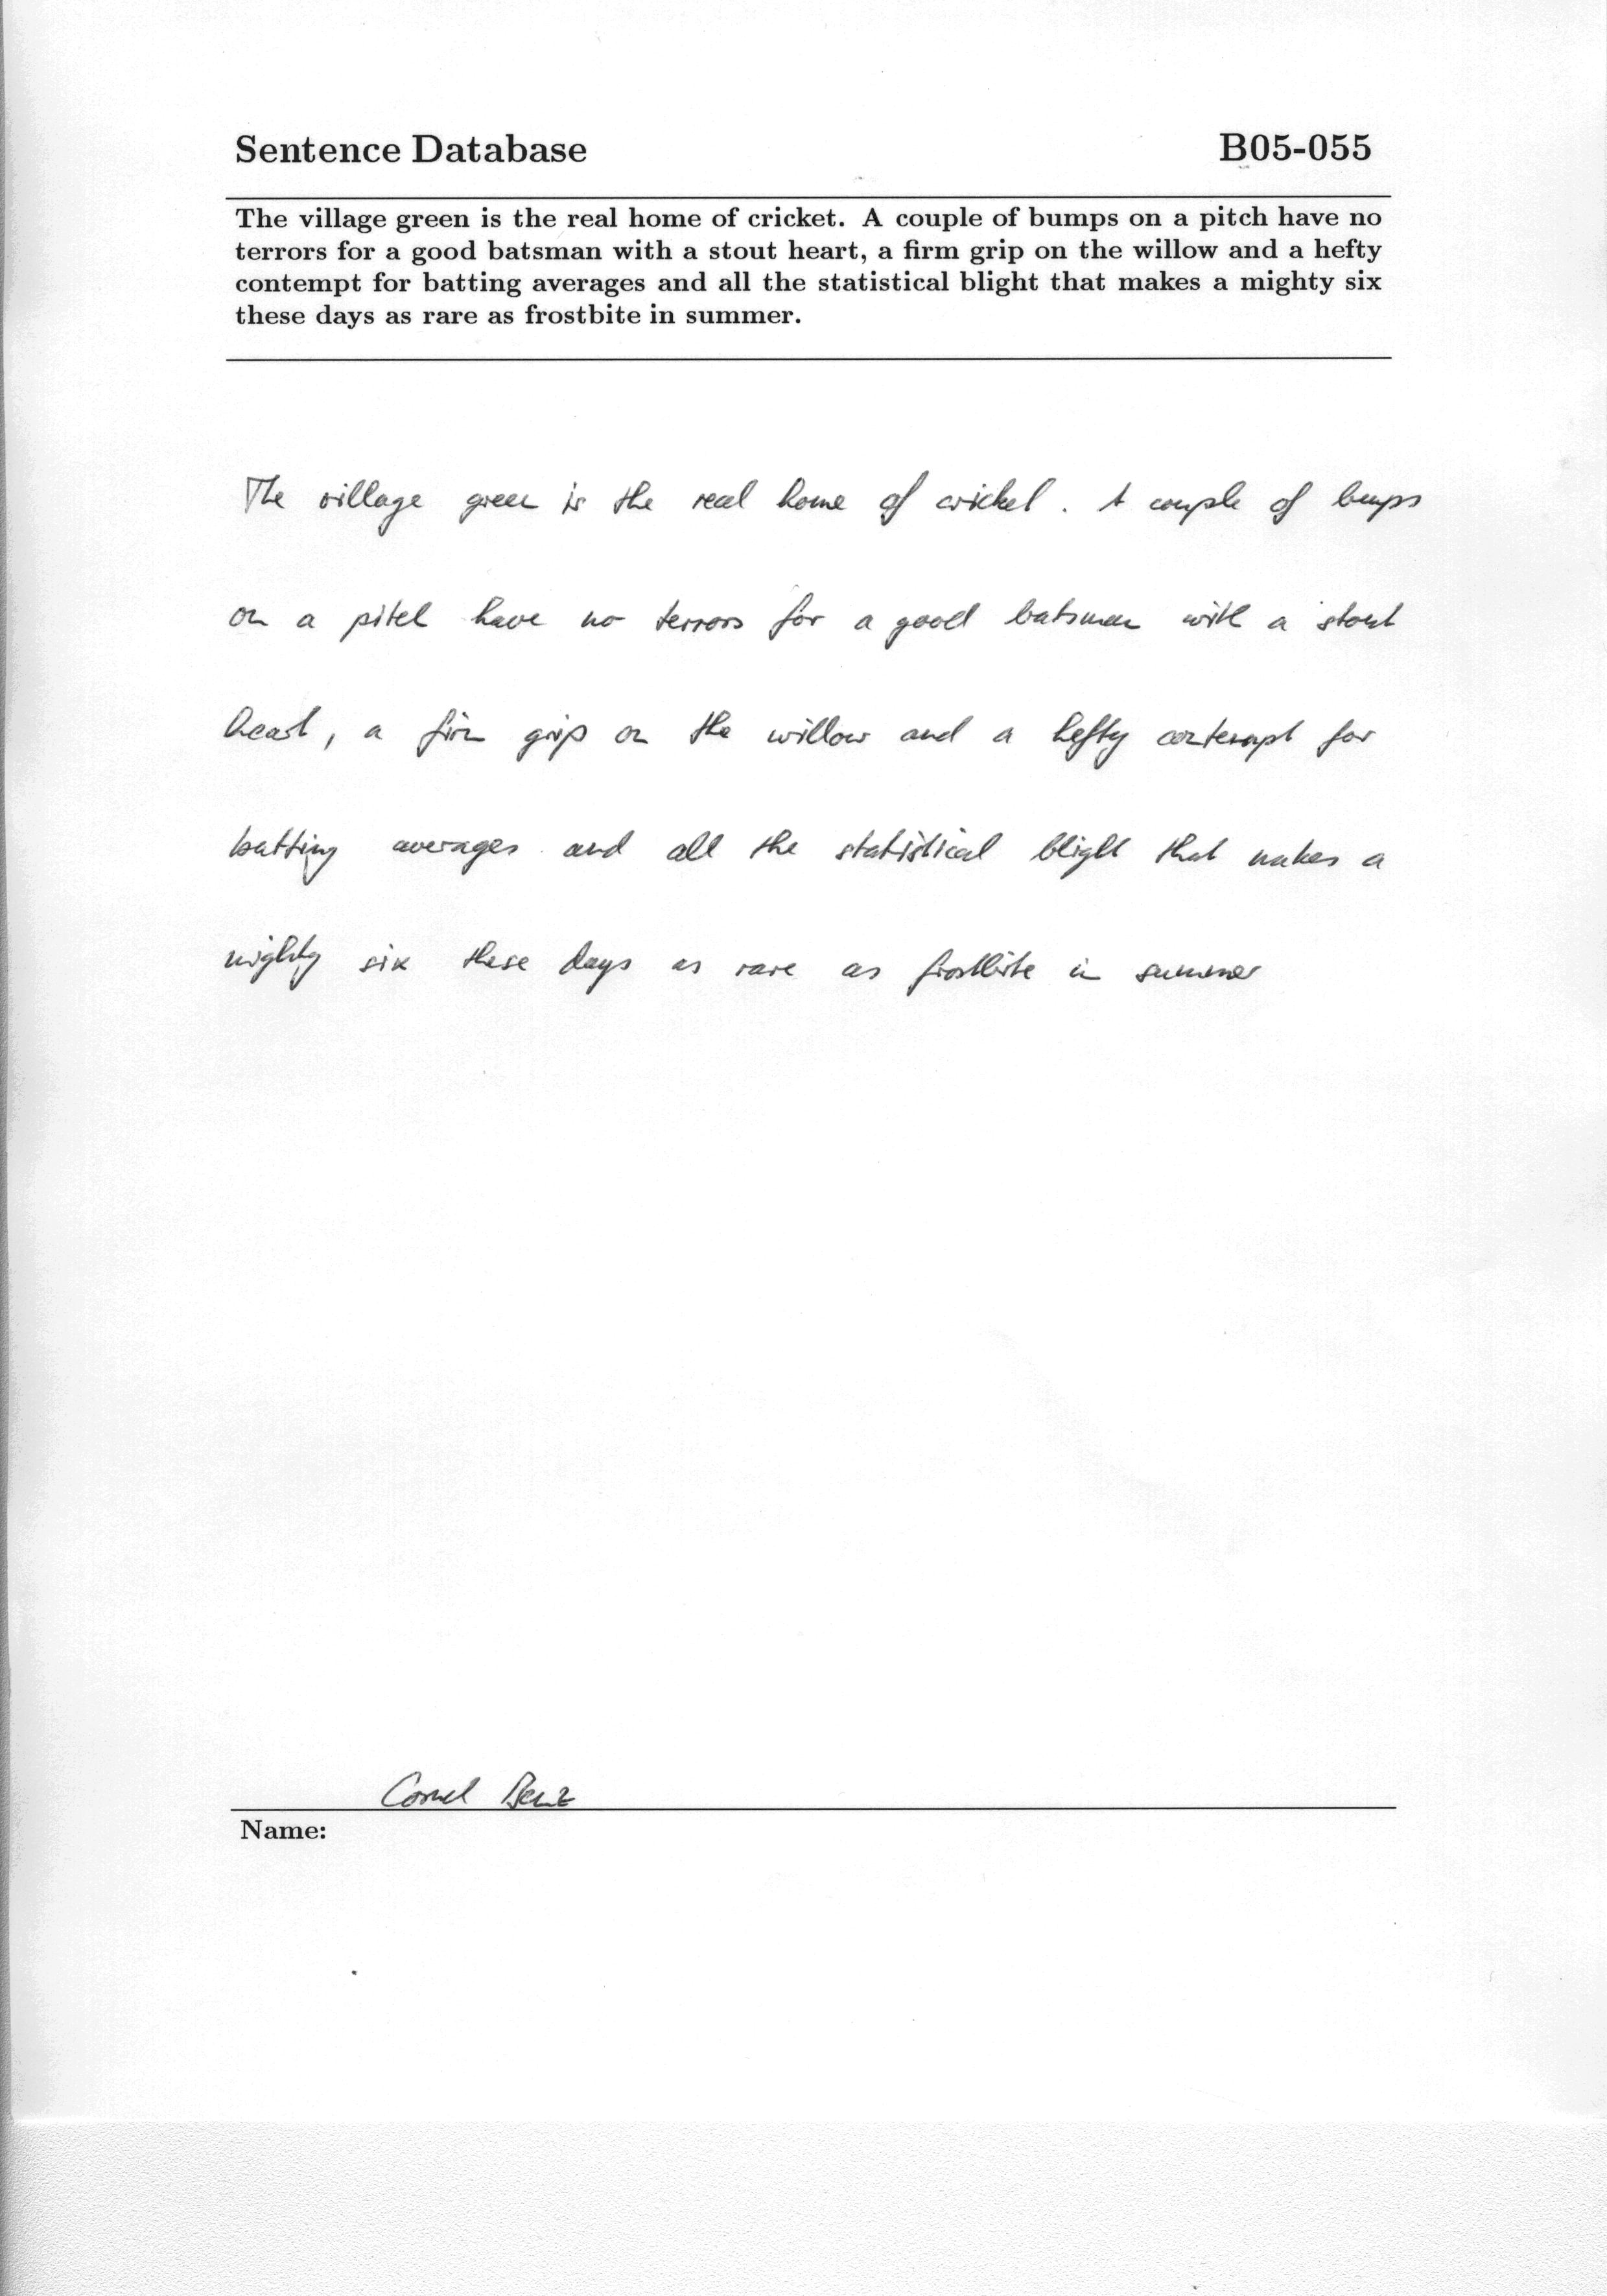 Sentence Database B05-055
The village green is the real home of cricket. A couple of bumps on a pitch have no
terrors for a good batsman with a stout heart, a firm grip on the willow and a hefty
contempt for batting averages and all the statistical blight that makes a mighty six
these days as rare as frostbite in summer.
The village green is the real home of cricket. A couple of bumps
on a pitch have no terrors for a good batsman with a stout
heart, a firm grip on the willow and a hefty contempt for
batting averages and all the statistical blight that makes a
mighty six these days as rare as frostbite in summer
Cornel Benz
Name: